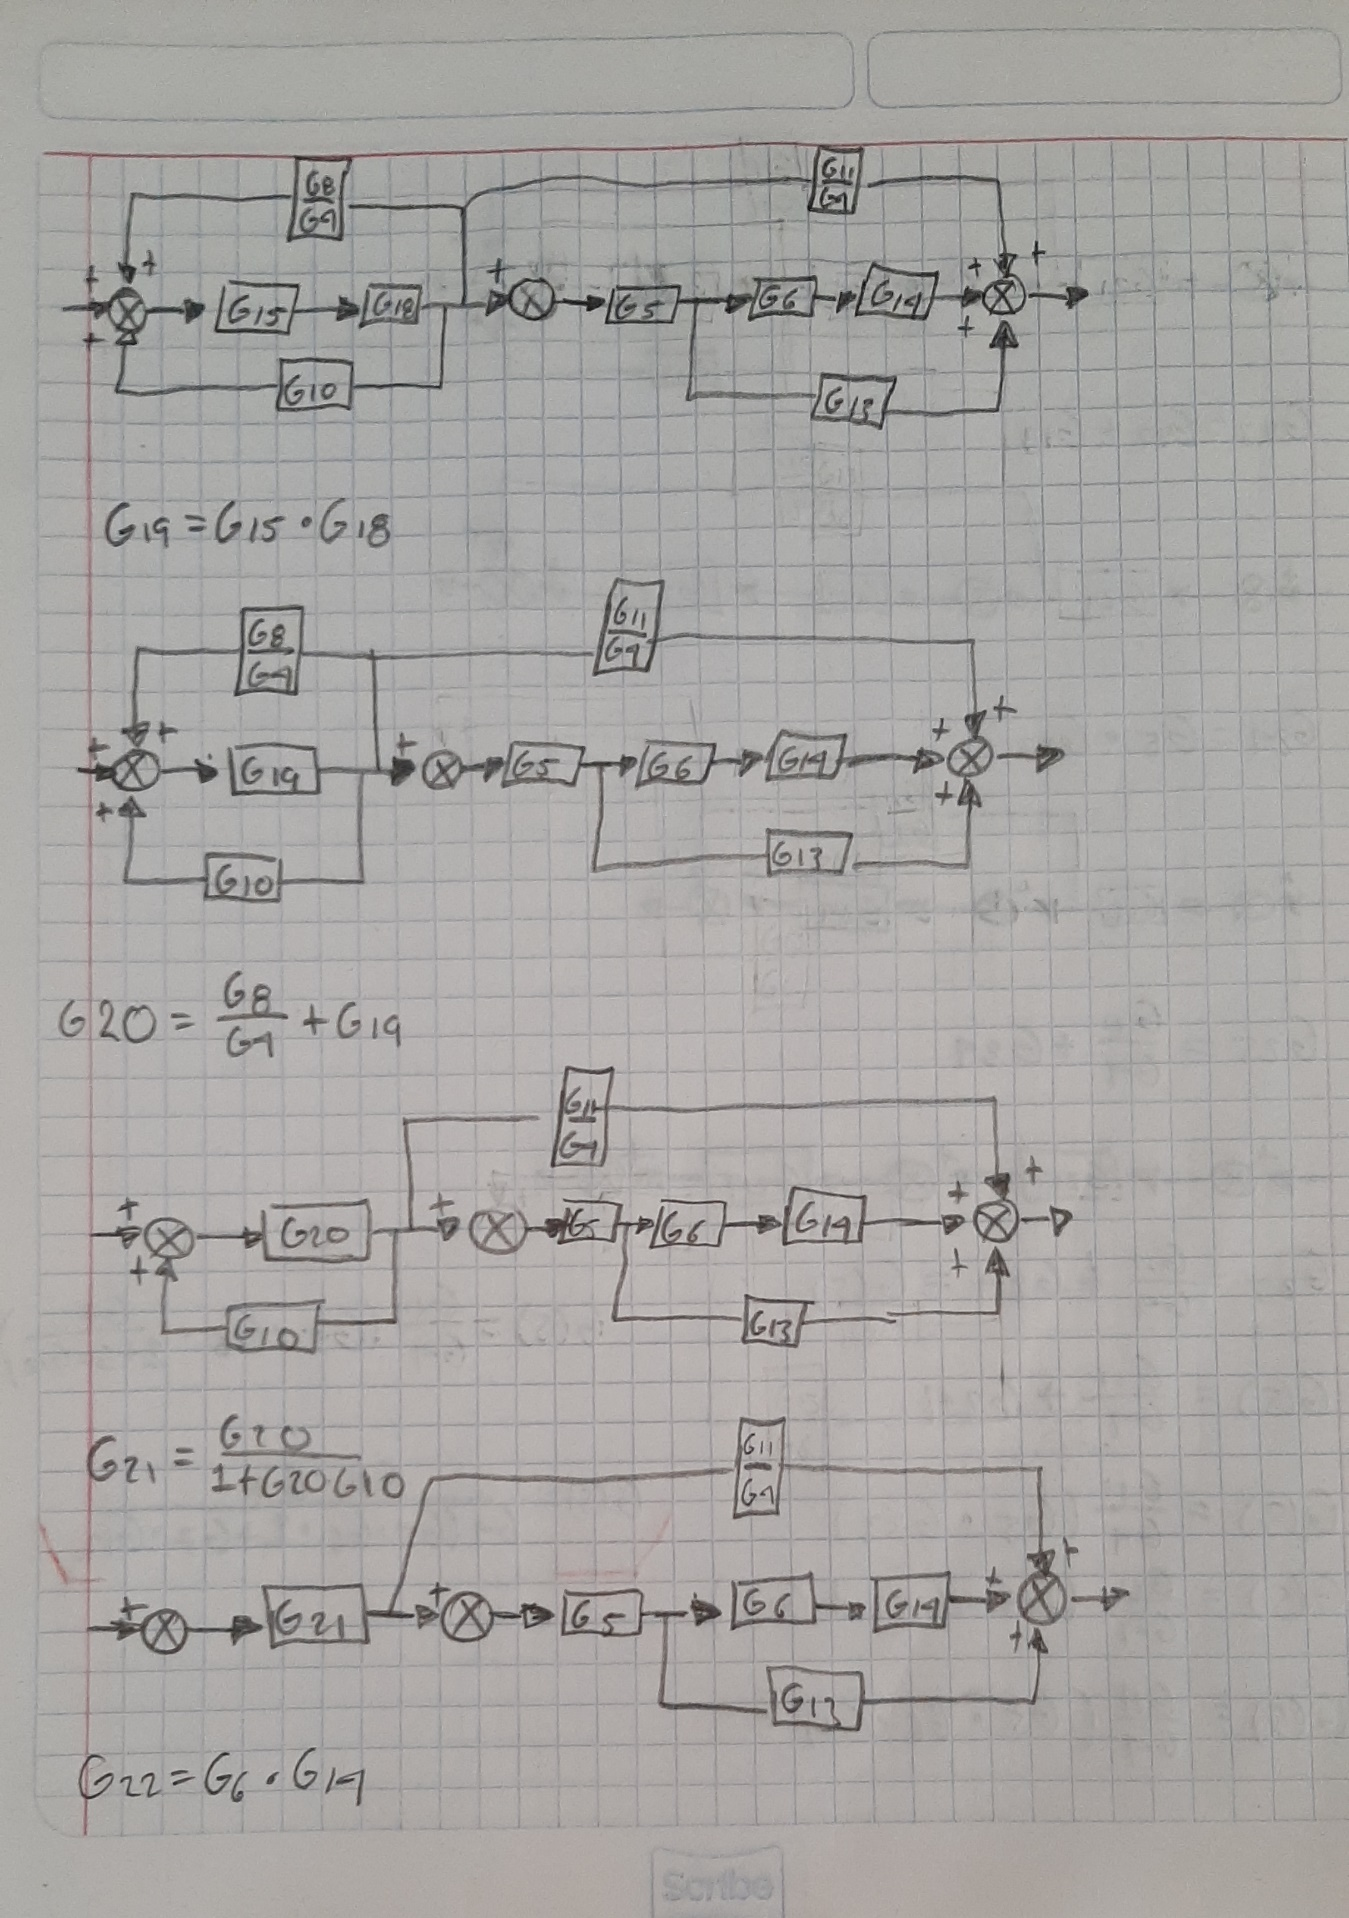 G8 G11
G4 G4
+ + + + +
G15 G18 G5 G6 G14
+ +
G10 G13
G19 = G15 • G18
G8 G11
G4 G4
+ + + + +
G19 G5 G6 G14
+ +
G10 G13
G20 = G8/G4 + G19
G11
G4
+ + + +
G20 G5 G6 G14
+ +
G10 G13
G21 = G20/1+G20G10
G11
G4
+ + + +
G21 G5 G6 G14
+
G13
G22 = G6 • G14
Scribe